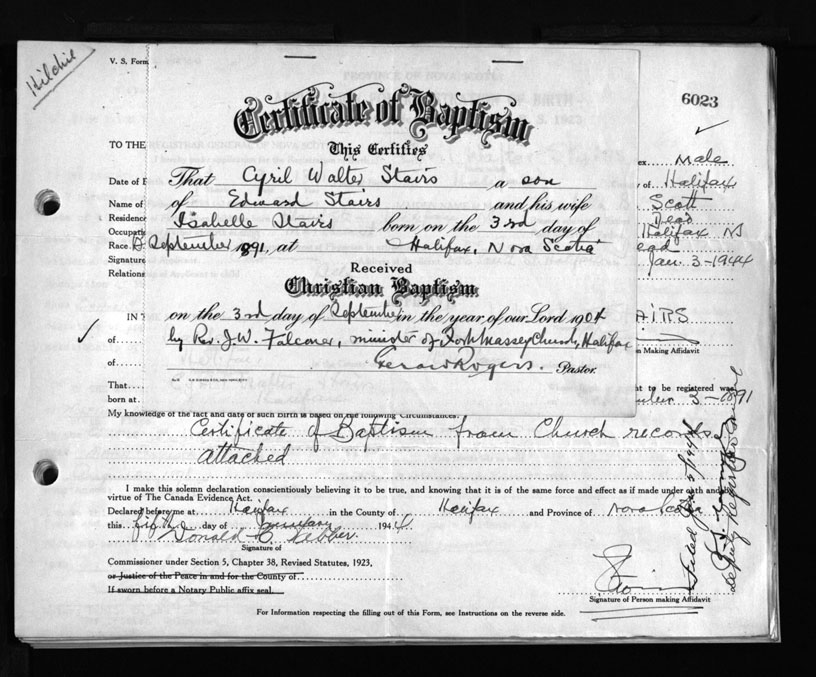 Hilchie
V. S. Form
6023
Certificate of Baptism
TO THE
This Certifies
Male
Date of
That Cyril Walter Stairs a son
of Halifax
Name of
of Edward Stairs and his wife
Scott
Residence
Isabelle Stairs born on the 3rd day of
Dead
Occupation
Halifax NS
Race
September 1891, at Halifax, Nova Scotia
ead
Signature
Received
Jan. 3-1944
Relations
Christian Baptism
IN
on the 3rd day of September in the year of our Lord 1904
AIRS
of
by Rev. J. W. Falconer, minister of Fort Massey Church, Halifax
on Making Affidavit
of
Gerald Rogers. Pastor.
That
nt to be registered was
born at
3-1891
My knowledge of the fact and date of such birth is based on the following circumstances:
Certificate of Baptism from Church records
attached
I make this solemn declaration conscientiously believing it to be true, and knowing that it is of the same force and effect as if made under oath and by
virtue of The Canada Evidence Act.
Declared before me at Halifax in the County of Halifax and Province of Nova Scotia
this fifth day of January 1944
Donald C. Webber
Signature of
Commissioner under Section 5, Chapter 38, Revised Statutes, 1923,
or Justice of the Peace in and for the County of
If sworn before a Notary Public affix seal.
Signature of Person making Affidavit
For Information respecting the filling out of this Form, see Instructions on the reverse side.
Filed Jan 5/1944
Deputy Registrar General